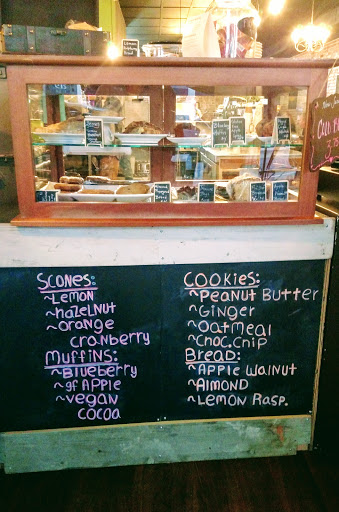 Scones:
~Lemon
~Hazelnut
~Orange
Cranberry
Muffins:
~Blueberry
~gf Apple
~Vegan
Cocoa
Cookies:
~Peanut Butter
~Ginger
~Oatmeal
~Choc. Chip
Bread:
~Apple Walnut
~Almond
~Lemon Rasp.